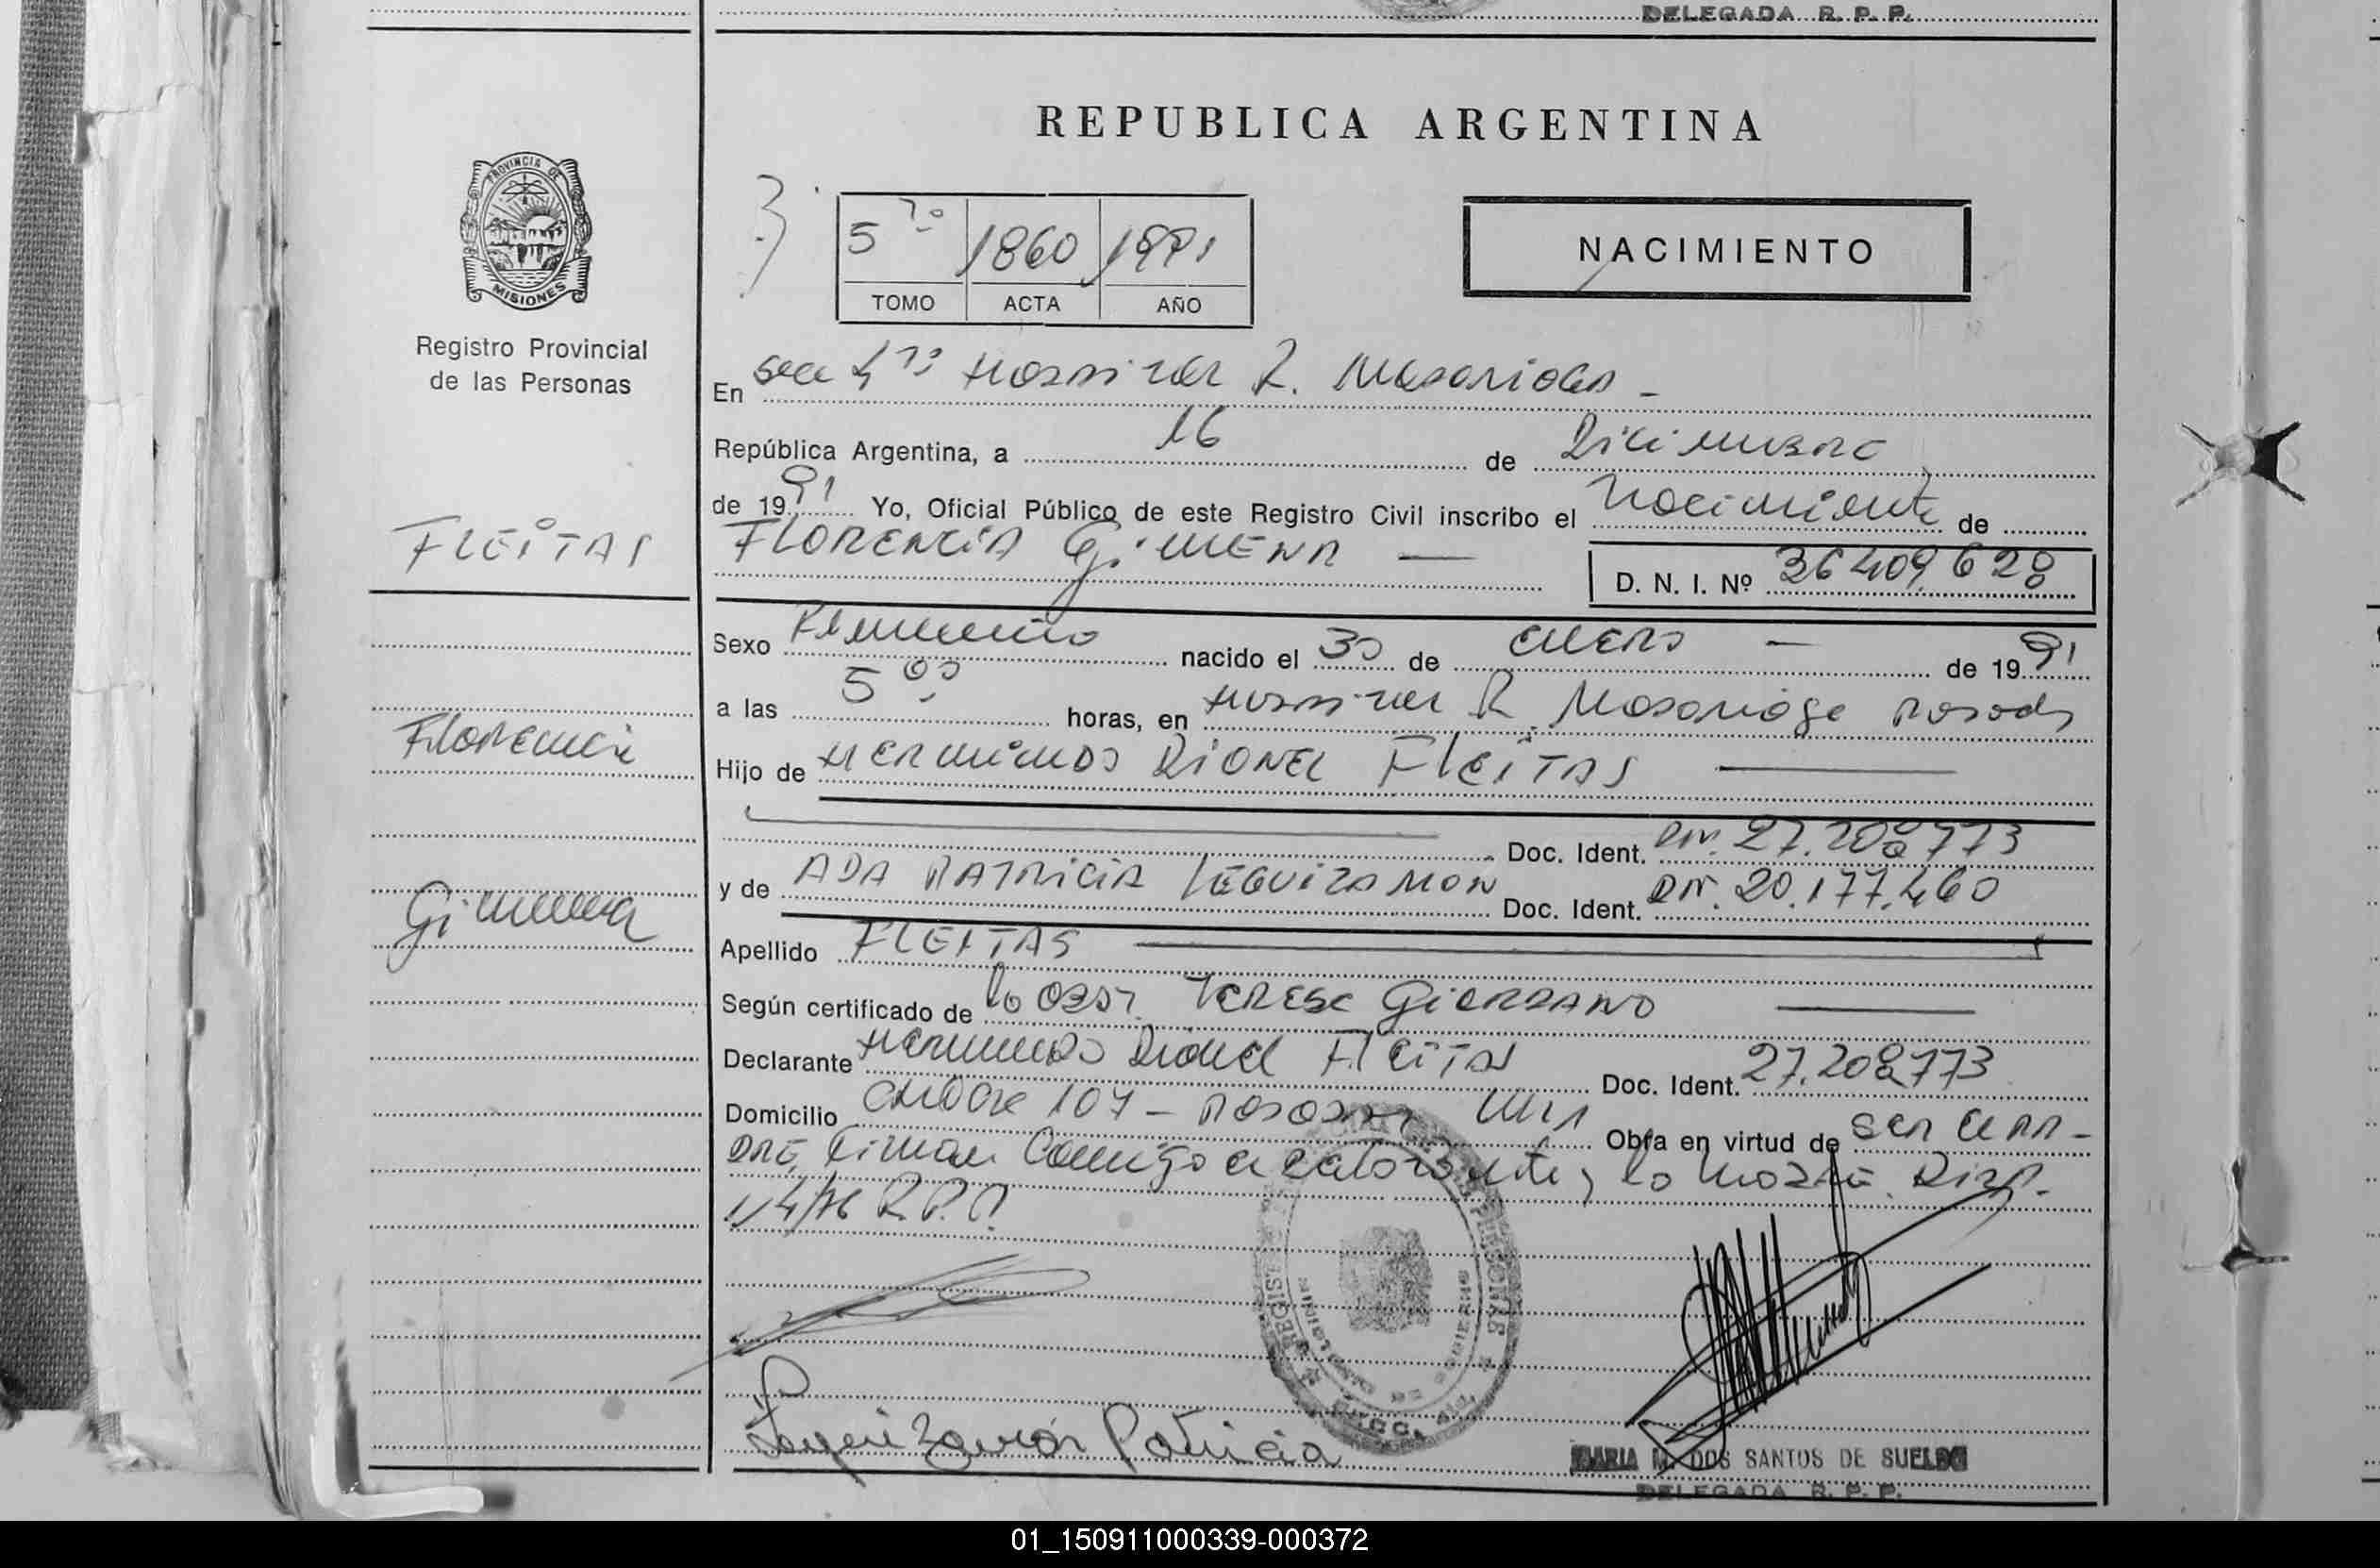 DELEGADA R. P. P.
REPUBLICA ARGENTINA
PROVINCIA DE
MISIONES
Registro Provincial
de las Personas
5 to 1860 1991
TOMO ACTA AÑO
NACIMIENTO
En Hospital R. Madariaga -
República Argentina, a 16 de Diciembre
de 1991 Yo, Oficial Público de este Registro Civil inscribo el Nacimiento de
FLEITAS
FLORENCIA GIMENA —
D. N. I. Nº 36409628
Sexo Femenino nacido el 30 de ENERO — de 1991
a las 5 00 horas, en Hospital R. Madariaga Posadas
Florencia
Hijo de HERMINDO LIONEL FLEITAS —
Doc. Ident. 27.208773
Gimena
y de ADA PATRICIA LEGUIZAMON Doc. Ident. 20.177.460
Apellido FLEITAS
Según certificado de la Obst. TERESA GIORDANO —
Declarante Hermindo Lionel FLEITAS Doc. Ident. 27.208773
Domicilio 107 - Posadas Obra en virtud de ser el pa-
dre, Firman Conmigo el declarante y la madre. Disp.
1/4/76 R.P.P.
Leguizamón Patricia
MARIA M. DOS SANTOS DE SUELDO
DELEGADA R. P. P.
01_150911000339-000372